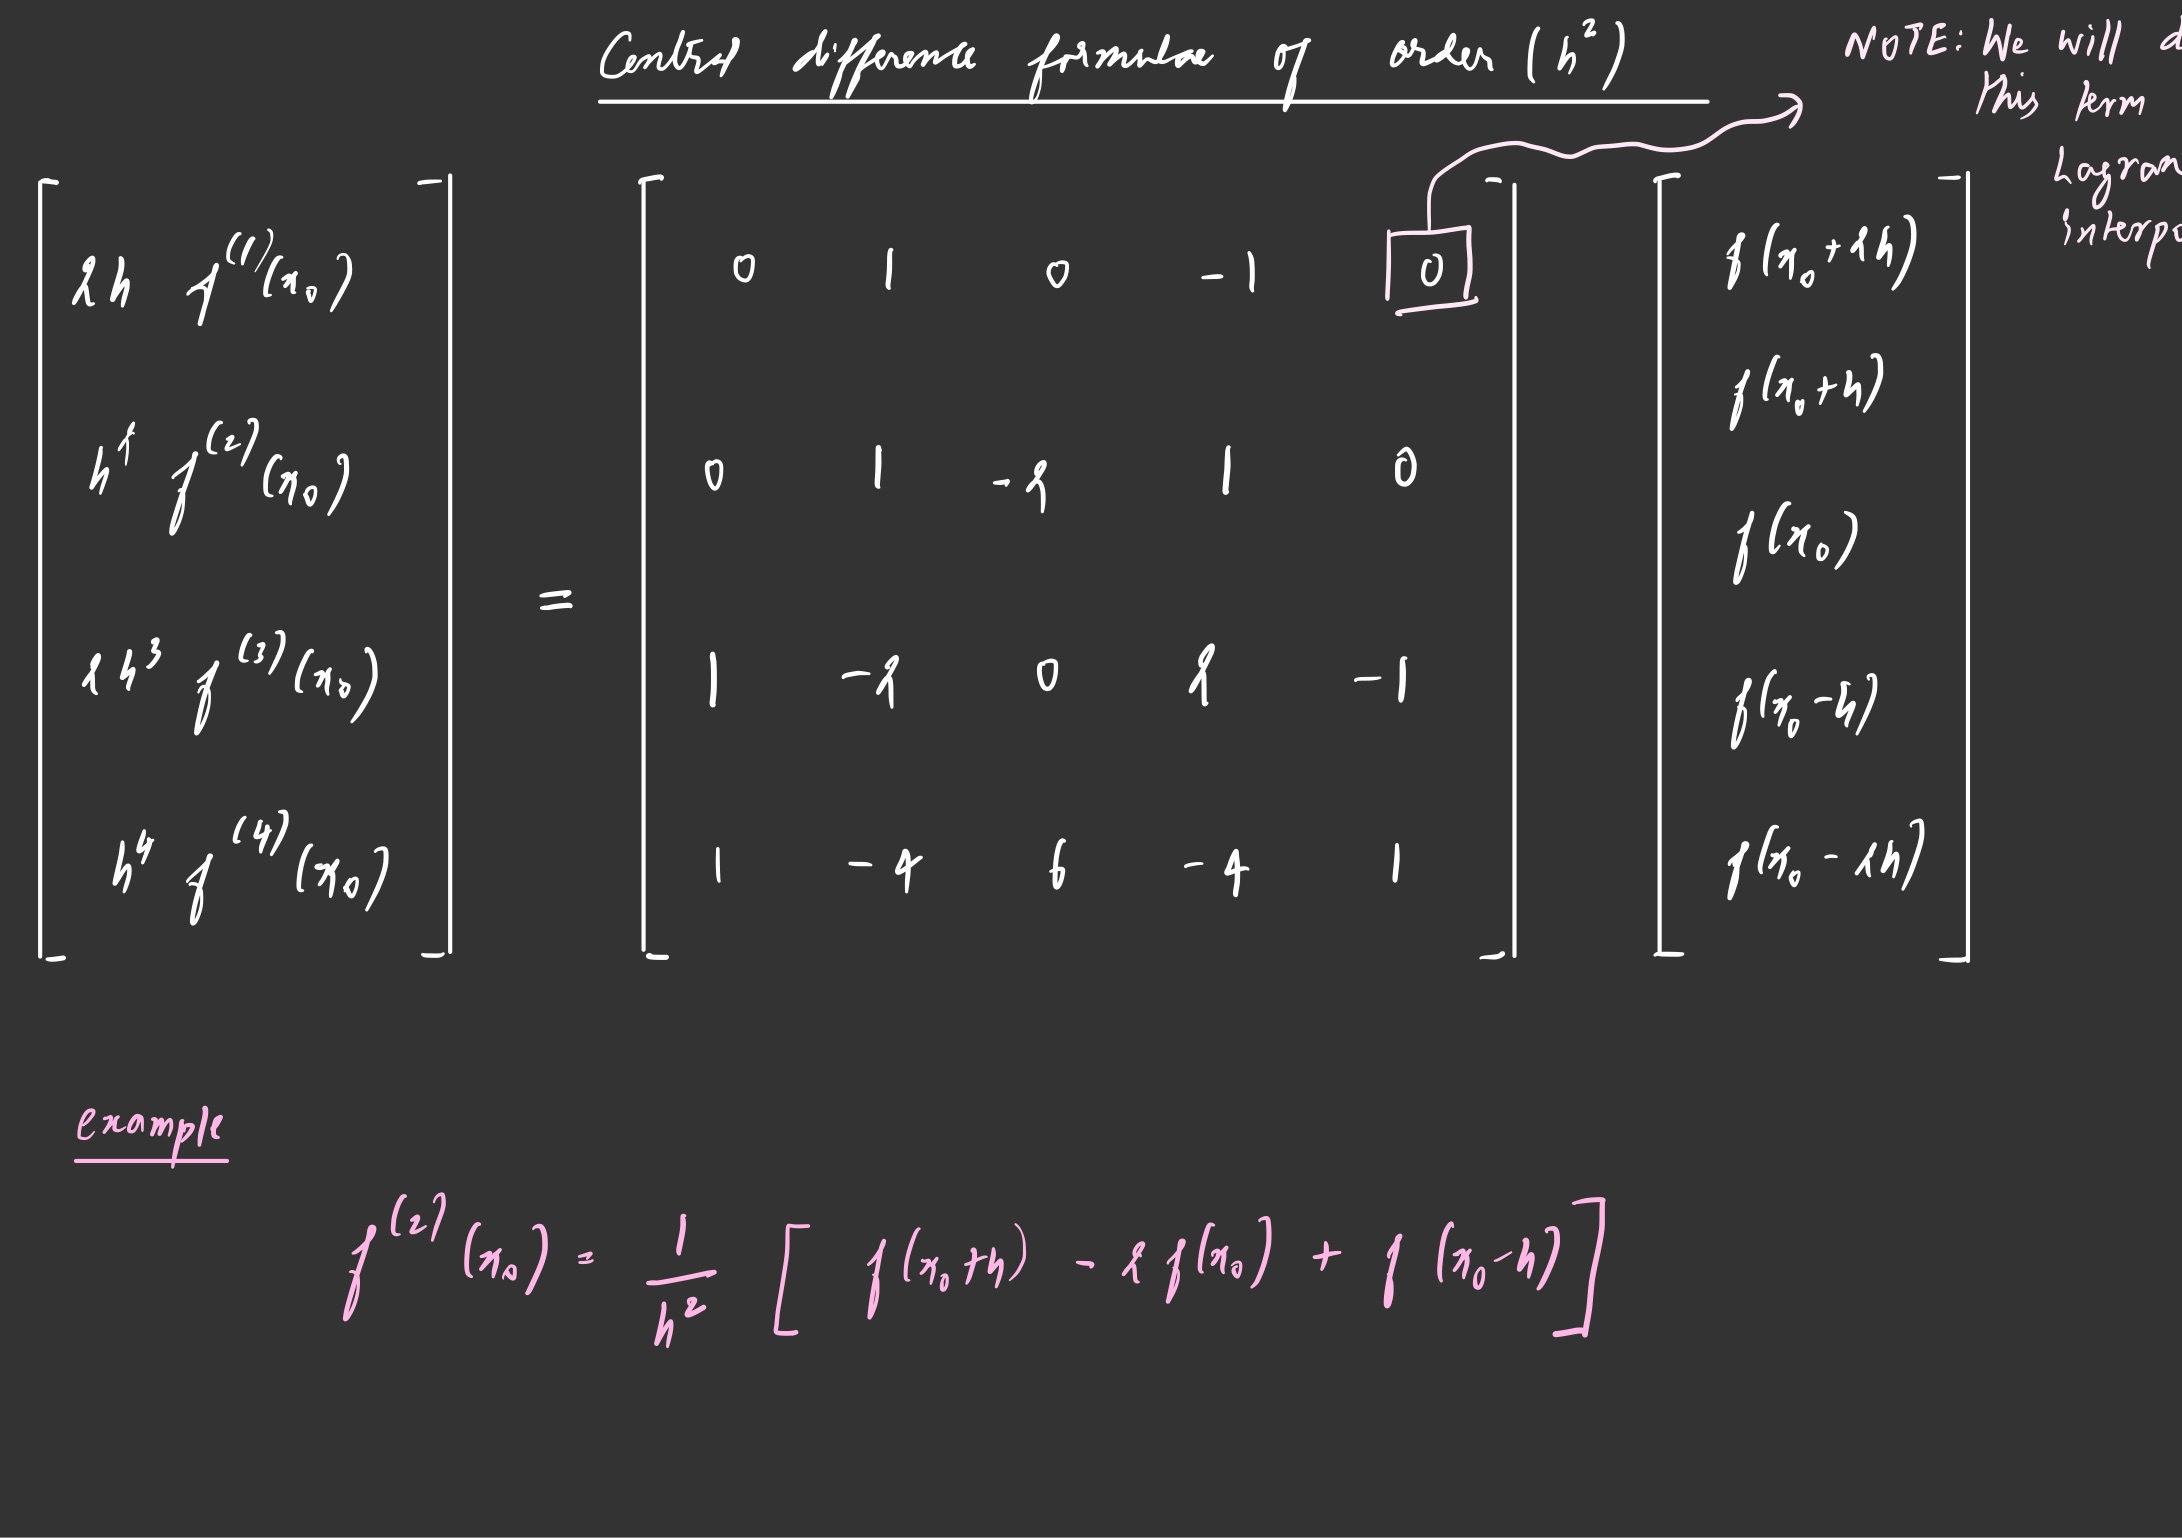 Central difference formulae of order (h²)
NOTE: We will
this term
2h f⁽¹⁾(x₀)
h² f⁽²⁾(x₀)
2h³ f⁽³⁾(x₀)
h⁴ f⁽⁴⁾(x₀)
=
0 1 0 -1 0
0 1 -2 1 0
1 -2 0 2 -1
1 -4 6 -4 1
f(x₀+2h)
f(x₀+h)
f(x₀)
f(x₀-h)
f(x₀-2h)
example
f⁽²⁾(x₀) = 1/h² [ f(x₀+h) - 2f(x₀) + f(x₀-h) ]